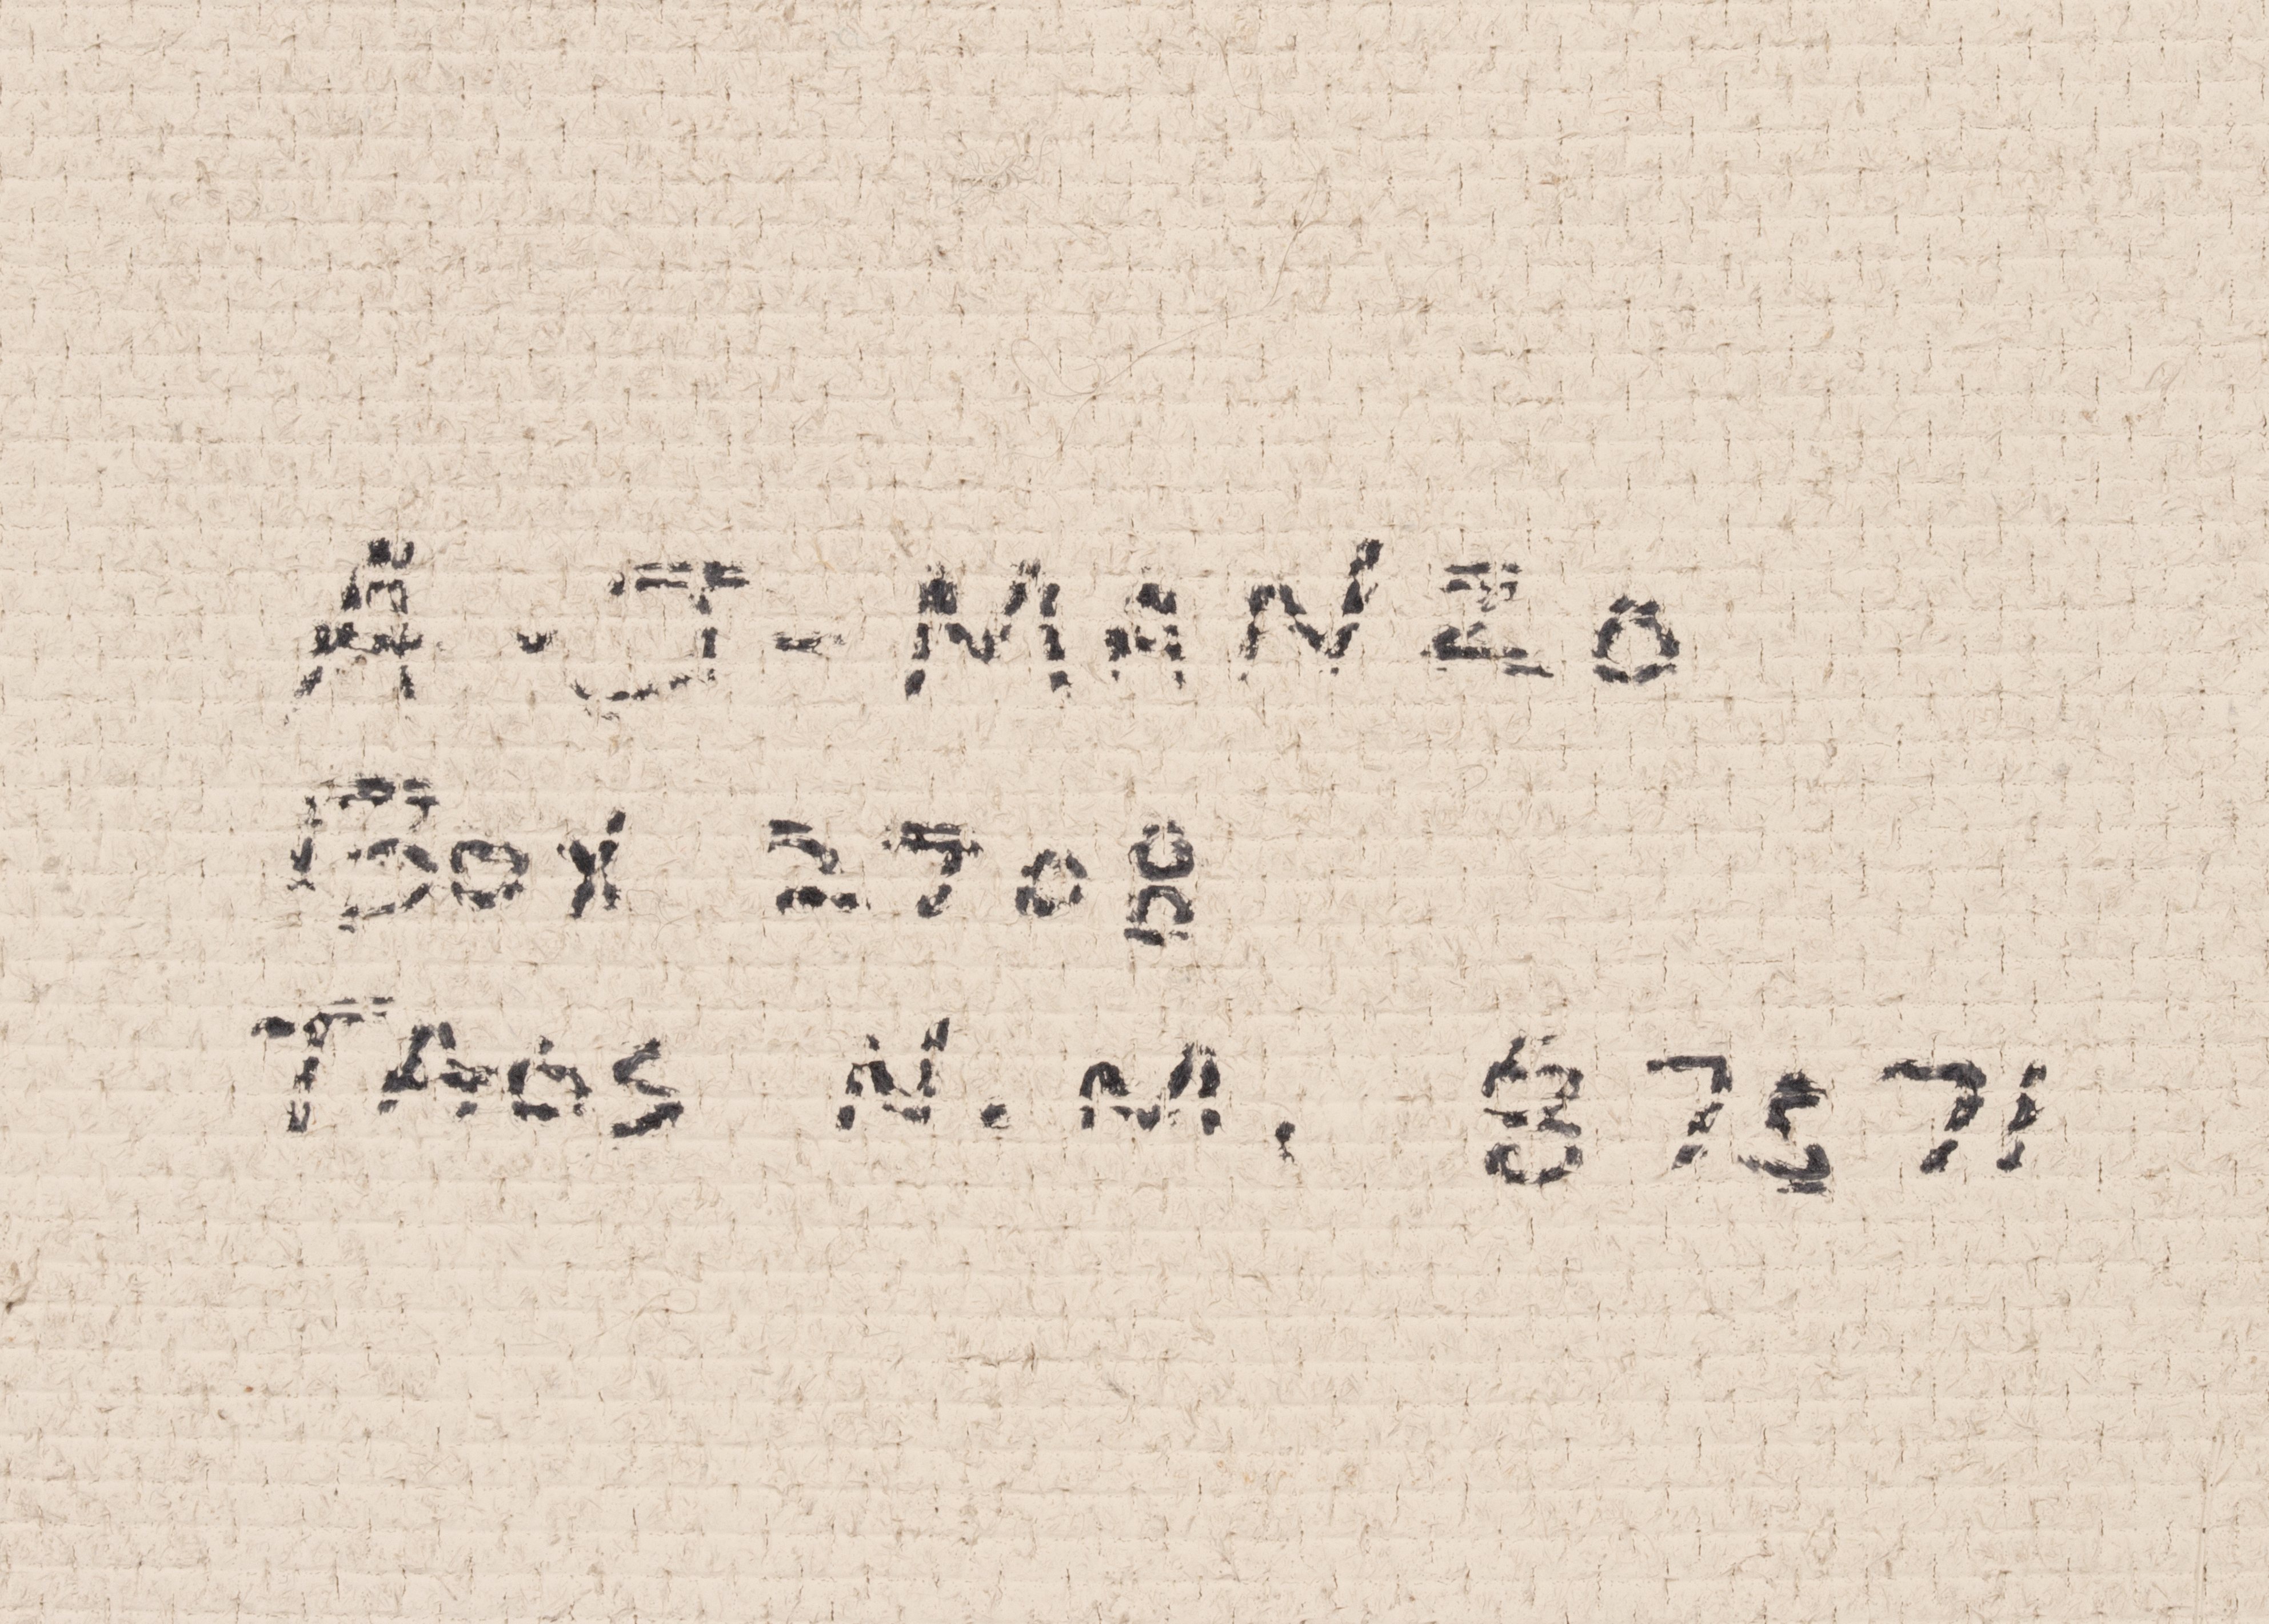 A. J - MANZO
Box 2708
TAOS N.M. 87571